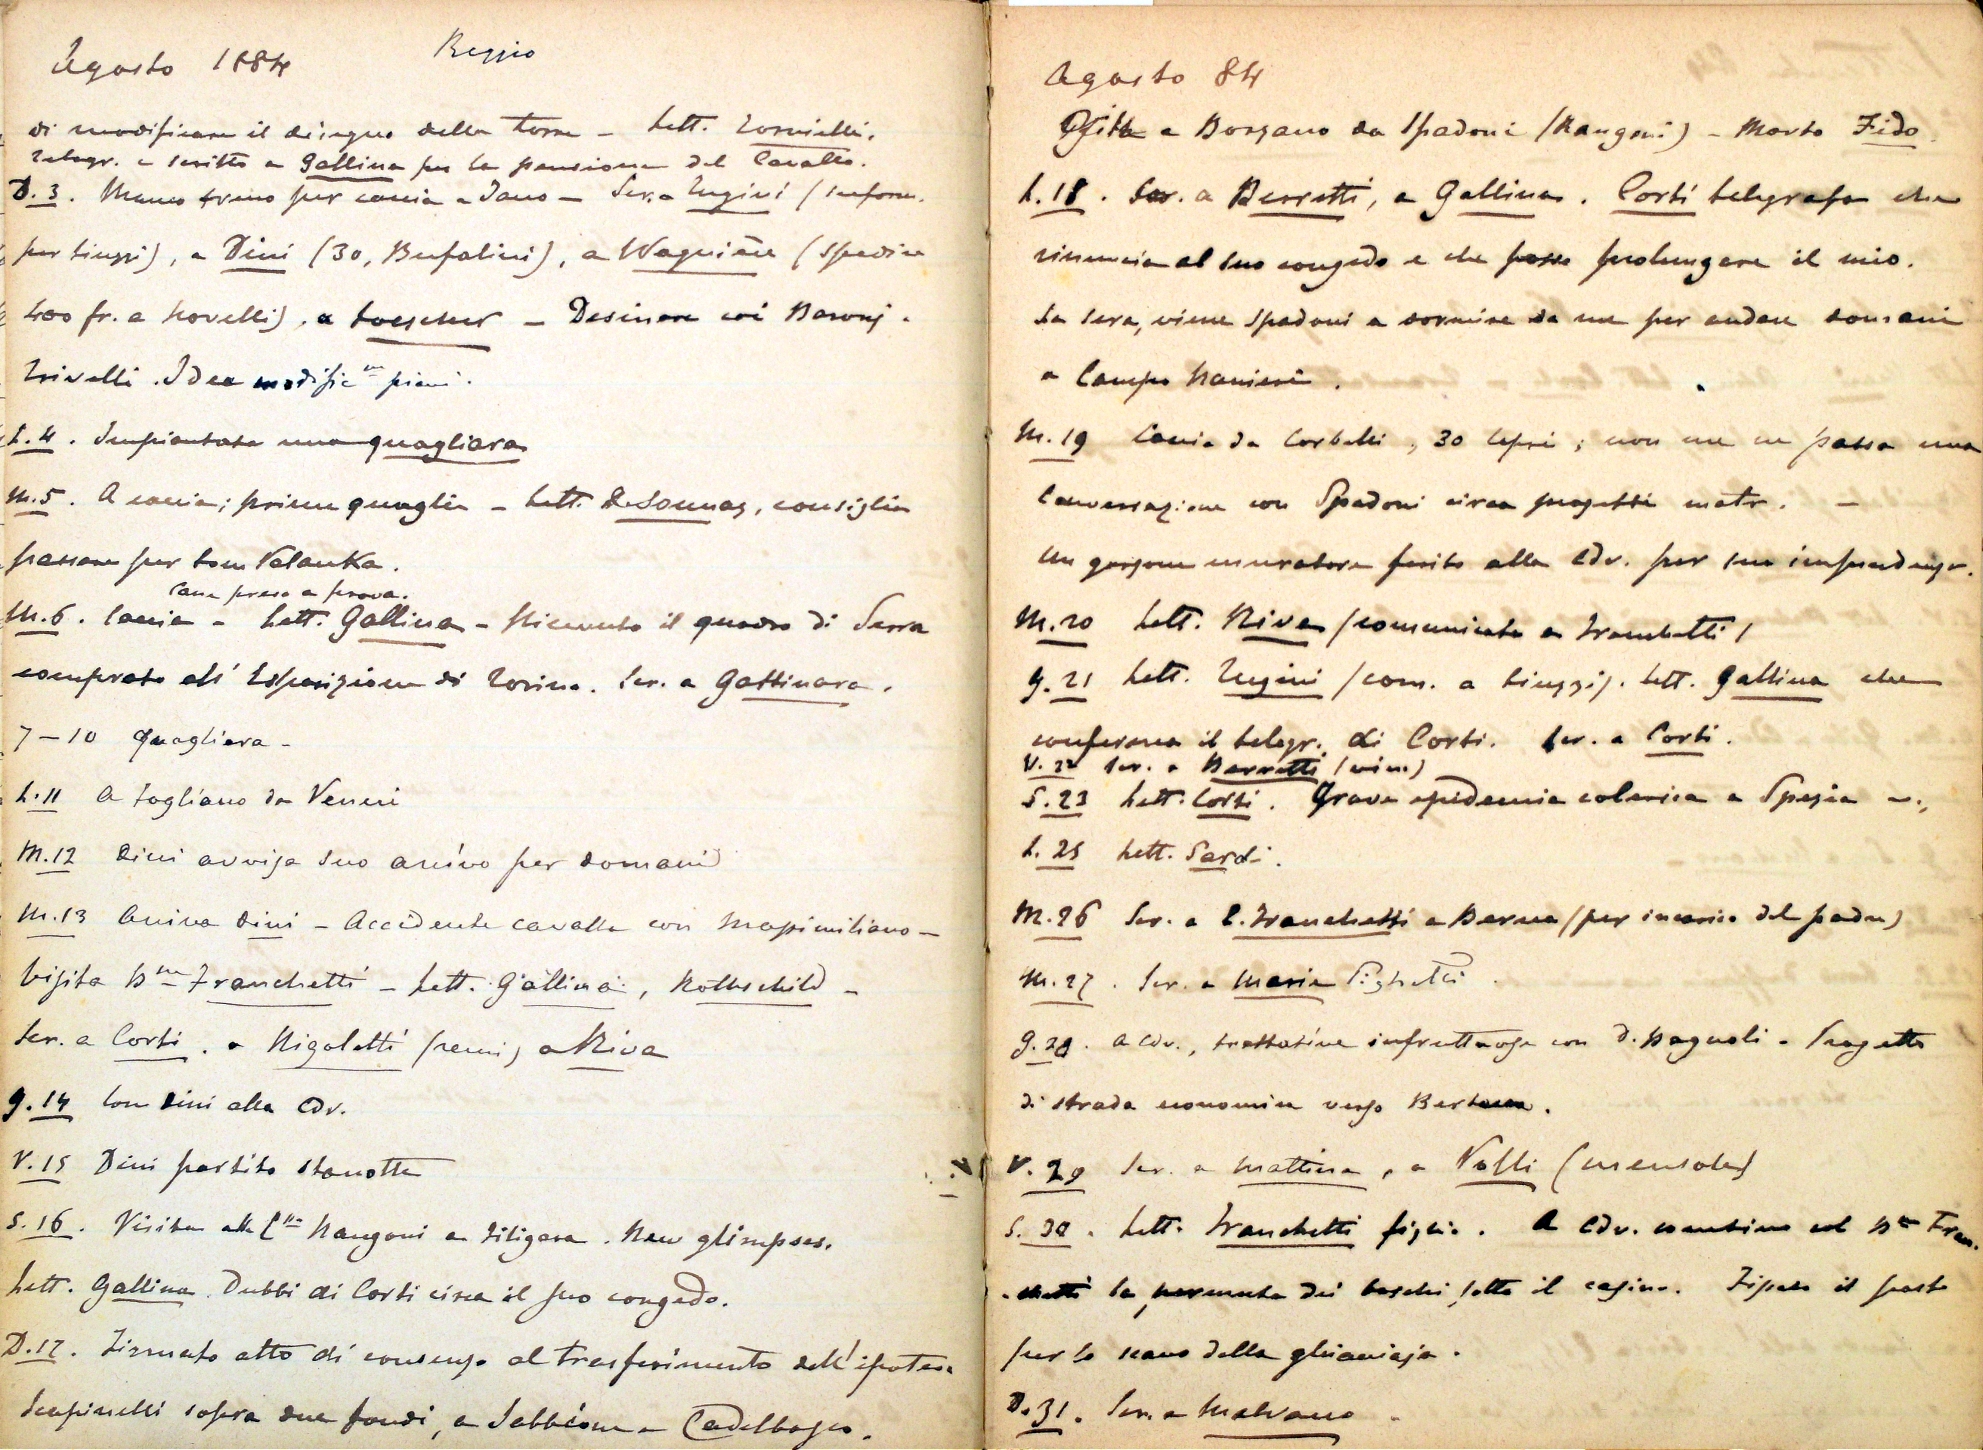 Agosto 1884 Reggio
di modificare il disegno della torre – Lett. Tornielli.
Telegr. e scritto a Gallina per la pensione del Cavallo.
D. 3. Manco treno per caccia a Jano – Scr. a Tugini (inform.
per Liuzzi), a Dini (30, Bufalini), a Wagnière (spedire
400 fr. a Novelli), a Loescher – Desinare coi Baroni.
Trivelli. Idea modific.ne piani.
L. 4. Impiantata una quagliara
M. 5. A caccia; prime quaglie – Lett. De Sonnaz, consiglia
passare per Lom Palanka.
Cane preso a prova.
M. 6. Caccia – Lett. Gallina – Ricevuto il quadro di Serra
comprato all'Esposizione di Torino. Scr. a Gattinara.
7–10 Quagliara –
L. 11 A Fogliano da Veneri
M. 12 Dini avvisa suo arrivo per domani
M. 13 Arriva Dini – Accidente cavallo con Massimiliano –
Visita B.ne Franchetti – Lett. Gallina, Rothschild –
Scr. a Corti, a Rigoletti (remi) a Riva
G. 14 Con Dini alla Cdv.
V. 15 Dini partito stanotte
S. 16. Visita alla C.ssa Rangoni a . New glimpses.
Lett. Gallina. Dubbi di Corti circa il suo congedo.
D. 17. Firmato atto di consenso al trasferimento dell'ipoteca
Scapinelli sopra due fondi, a Sabbione a Cadelbosco.
Agosto 84
Gita a Borzano da Spadoni (Rangoni) – Morto Fido.
L. 18. Scr. a Berretti, a Gallina. Corti telegrafa che
rinuncia al suo congedo e che posso prolungare il mio.
La sera, viene Spadoni a dormire da me per andare domani
a Campo Ranieri.
M. 19 Caccia da Corbelli, 30 lepri; non me ne passa una
Conversazione con Spadoni circa progetti matr. –
Un garzone muratore ferito alla Cdv. per sua imprudenza.
M. 20 Lett. Riva (comunicata a Franchetti)
G. 21 Lett. Tugini (com. a Liuzzi). Lett. Gallina che
conferma il telegr. di Corti. Scr. a Corti.
V. 22 Scr. a Berretti (vino)
S. 23 Lett. Corti. Grave epidemia colerica a Spezia –.
L. 25 Lett. Sardi.
M. 26 Scr. a E. Franchetti a Berna (per incarico del padre)
M. 27. Scr. a Maria Pighetti.
G. 28. A Cdv., trattative infruttuose con D. Bagnoli – Progetto
di strada economica verso .
V. 29 Scr. a Mattina, a Valli (mensole)
S. 30. Lett. Franchetti figlio. A Cdv. combino col B.ne Fran-
-chetti la permuta dei boschi sotto il casino. Fissato il posto
per lo scavo della ghiaciaja.
D. 31. Scr. a Malvano –